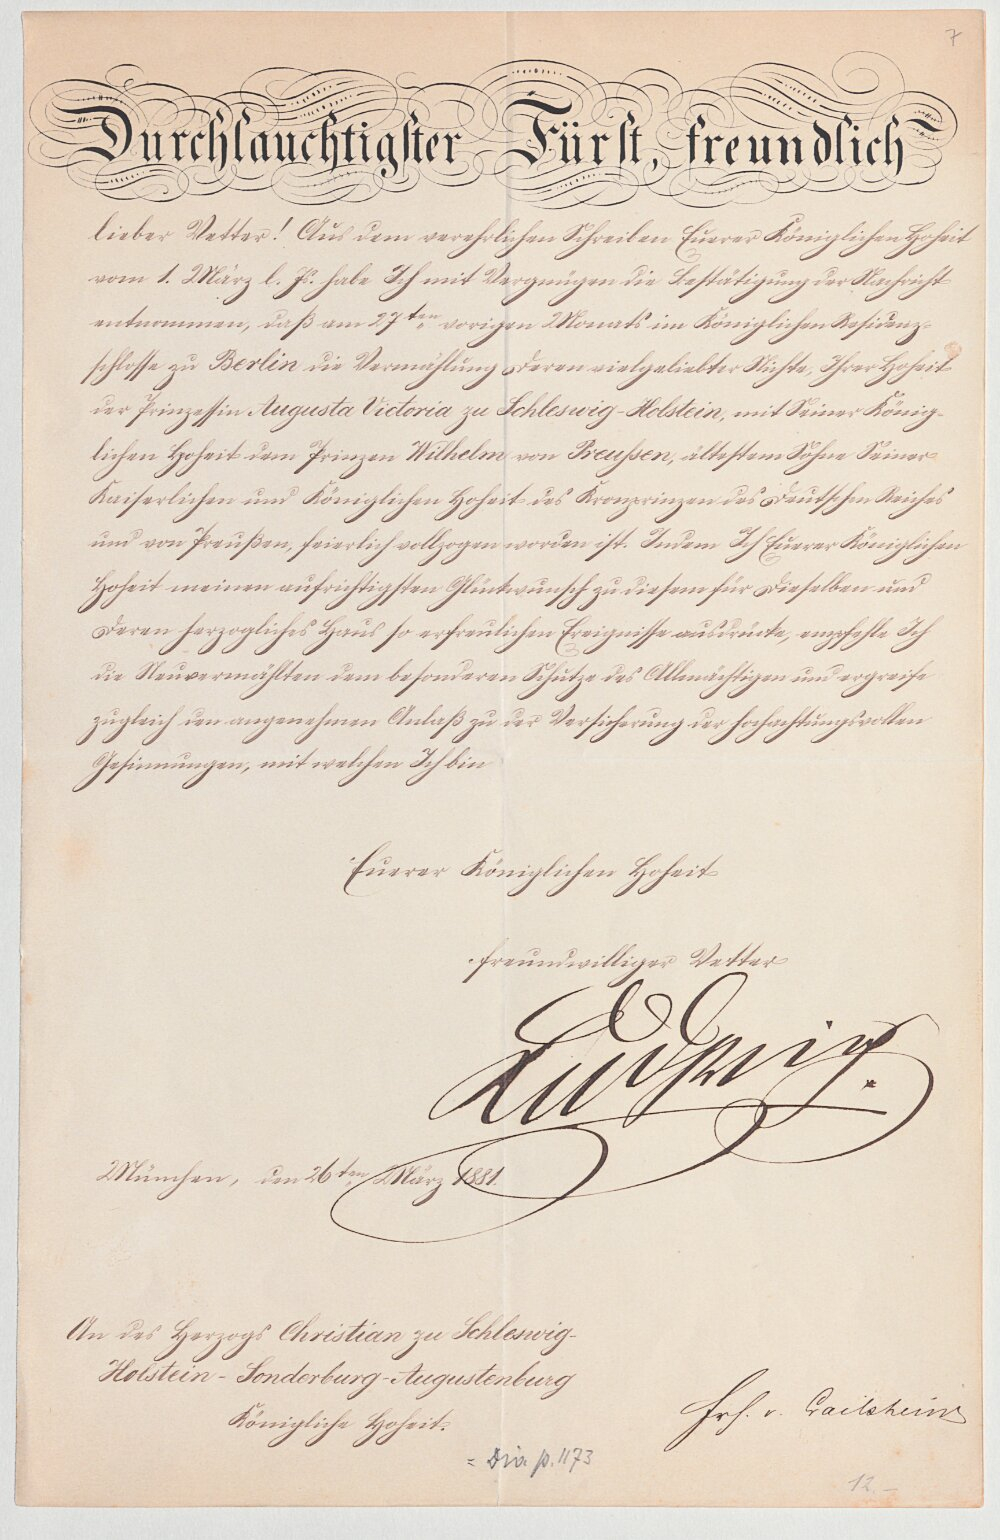 7
Durchlauchtigster Fürst, freundlich
lieber Vetter! Aus dem verehrlichen Schreiben Euerer Königlichen Hoheit
vom 1. März l. Js. habe Ich mit Vergnügen die Bestätigung der Nachricht
entnommen, daß am 27ten vorigen Monats im Königlichen Residenz-
schlosse zu Berlin die Vermählung Deren vielgeliebter Nichte, Ihrer Hoheit
der Prinzessin Augusta Victoria zu Schleswig-Holstein, mit Seiner König-
lichen Hoheit dem Prinzen Wilhelm von Preußen, ältestem Sohne Seiner
Kaiserlichen und Königlichen Hoheit des Kronprinzen des Deutschen Reiches
und von Preußen, feierlich vollzogen worden ist. Indem Ich Euerer Königlichen
Hoheit meinen aufrichtigsten Glückwunsch zu diesem für Dieselben und
Deren herzogliches Haus so erfreulichen Ereignisse ausdrücke, empfehle Ich
die Neuvermählten dem besonderen Schutze des Allmächtigen und ergreife
zugleich den angenehmen Anlaß zu der Versicherung der hochachtungsvollen
Gesinnungen, mit welchen Ich bin
Euerer Königlichen Hoheit
freundwilliger Vetter
Ludwig.
München, den 26ten März 1881.
An des Herzogs Christian zu Schleswig-
Holstein-Sonderburg-Augustenburg
Königliche Hoheit.
Frh. v. Crailsheim
= Dia p. 1173
12.–